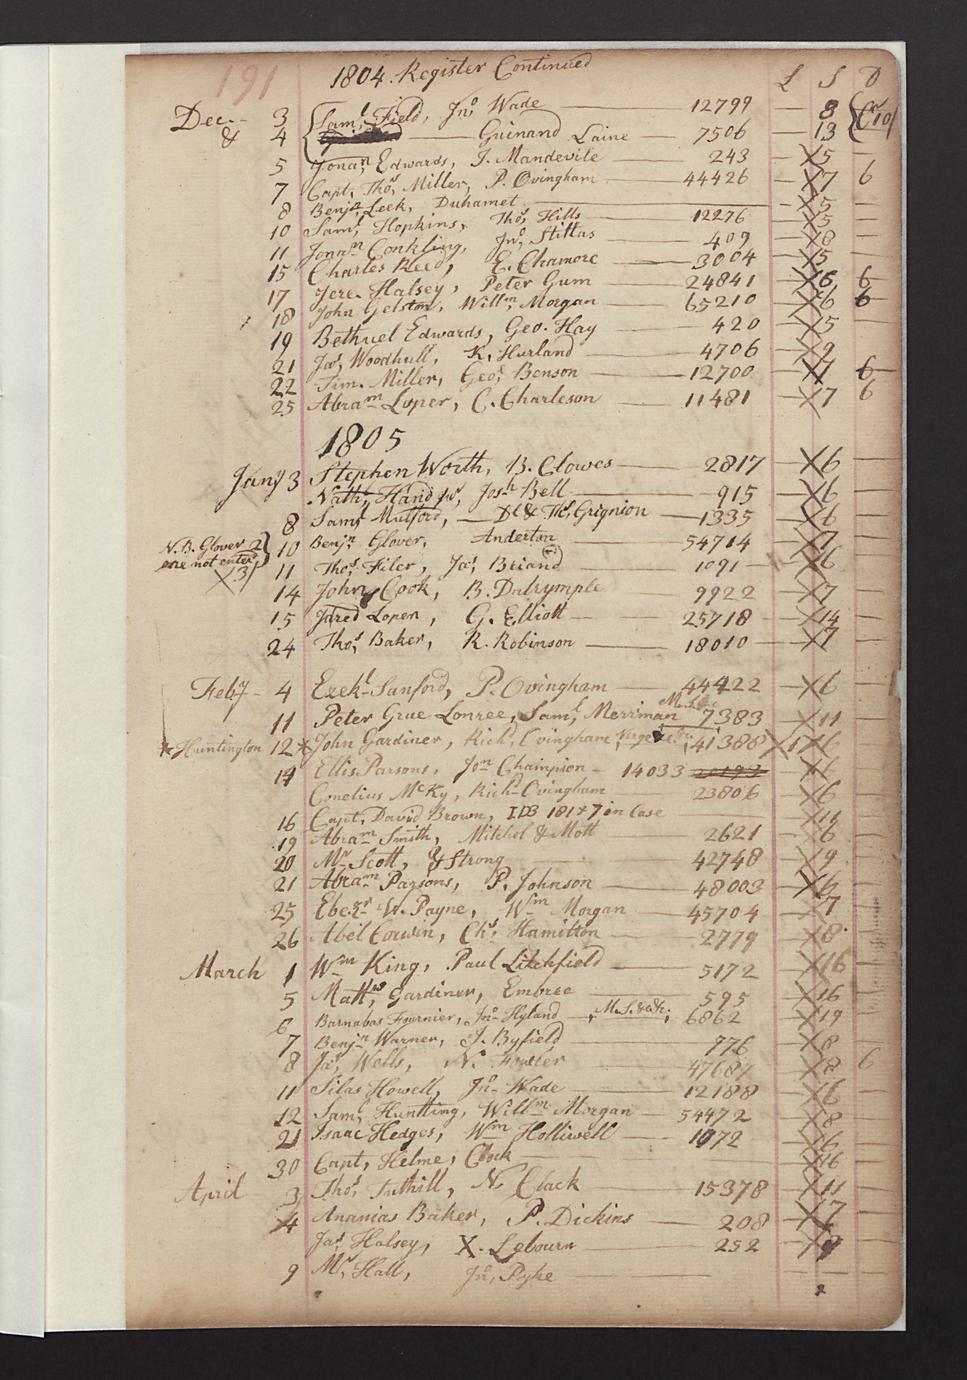 191 1804. Register Continued £ S D
Dec. 3 Saml. Field, Jno. Wade 12799 8 Cr 10/
& 4 Guinand Laine 7506 13
5 Jonan. Edwards, J. Mandevile 243 5
7 Capt. Thos. Miller, P. Ovingham 44426 7 6
8 Benjn. Leek, Duhamet 5
10 Saml. Hopkins, Thos. Hills 12276 5
11 Jonan. Conkling, Jno. Stittas 409 8
15 Charles Reed, E. Chamore 3004 5
17 Jere. Halsey, Peter Gum 24841 6 6
18 John Gelston, Willm. Morgan 65210 6 6
19 Bethuel Edwards, Geo. Hay 420 5
21 Jas. Woodhull, K. Hurland 4706 9
22 Tim. Miller, Geo. Benson 12700 7 6
25 Abram Loper, C. Charleson 11481 7 6
1805
Jany 3 Stephen Worth, B. Clowes 2817 6
Nath. Hand Jr., Josh Bell 915 6
8 Saml Mulford, Dl. & Thos. Grignion 1335 6
10 Benjn. Glover, Anderton 54714 7
N.B. Glover 2
one not enter'd
X 3/
11 Thos. Filer, Jas. Briand 1091 6
14 John Cook, B. Dalrymple 9922 7
15 Jared Loper, G. Elliott 25718 14
24 Thos. Baker, R. Robinson 18010 7
Feby 4 Ezekl. Sanford, P. Ovingham 44422 6
11 Peter Grue Lonree, Saml. Merriman 7383 11
* Huntington 12 X John Gardiner, Richd. Ovingham, 41388 X 1 6
14 Ellis Parsons, Jon Champion 14033 20193 6
Conelius McKy, Richd Ovingham 23806 6
16 Capt. David Brown, IDB 181 & 7 in Case 14
19 Abram Smith, Mitchel & Mott 2621 6
20 Mr Scott, & Strong 42748 9
21 Abram Parsons, P. Johnson 48003 6
25 Ebezr. W. Payne, Wm Morgan 45704 7
26 Abel Corwin, Chs. Hamilton 2779 8
March 1 Wm King, Paul Litchfield 5172 16
5 Matths. Gardiner, Embree 595 16
6 Barnabas Fournier, Jno. Hyland 6862 19
7 Benjn Warner, J. Byfield 776 8
8 Jas. Wells, N. Fowler 47687 8 6
11 Silas Howell, Jno Wade 12188 6
12 Saml. Huntting, Willm Morgan 54472 8
21 Isaac Hedges, Wm Holliwell 1072 6
30 Capt. Helme, Clock 16
April 3 Thos. Tuthill, N. Clack 15378 11
4 Ananias Baker, P. Dickins 208 7
Jas. Halsey, X. Lebourn 252 9
9 Mr. Hall, Jno. Pyke